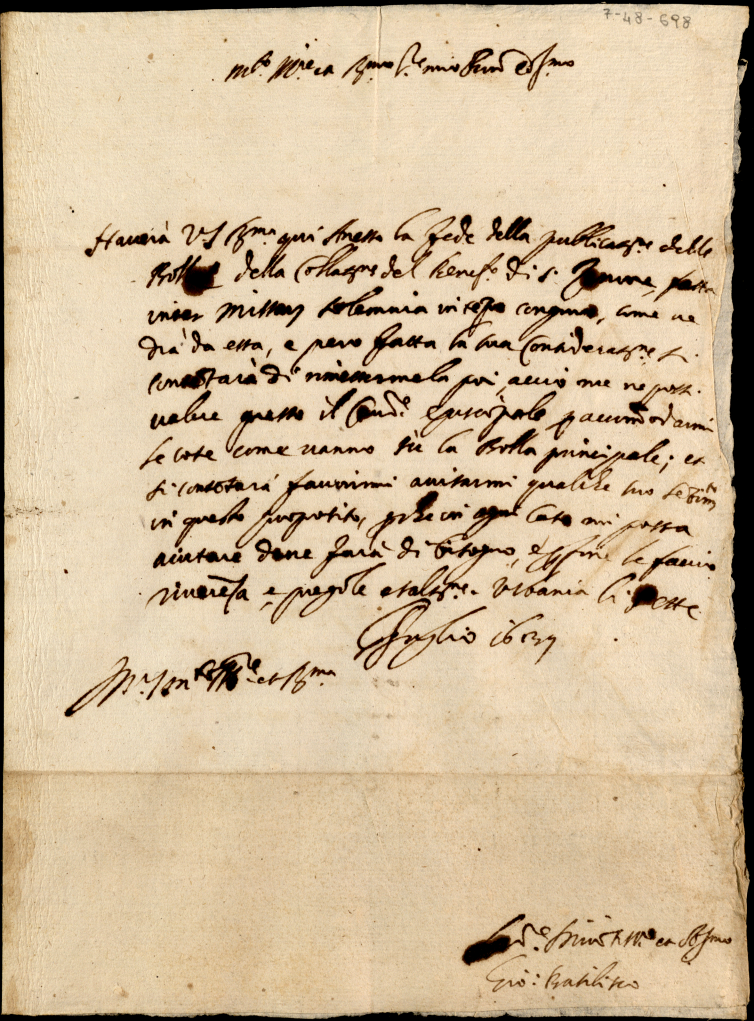 7-48-698
m.to Ill.re et R.mo S.re mio Pron Col.mo
Haverà V.S. R.ma qui annessa la fede della publicatio.ne delle
Bolle della Collatio.ne del Benef.o di S. fatta
inter Missarum solemnia in tepo congruo, come ve
drà da essa, e però fatta la sua consideratio.ne si
contentarà di rimettermela poi, acciò me ne possi
valere presso il episcopale p accomodarmi
le cose come vanno sù la Bolla principale; et
si contentarà favorirmi avisarmi qualche suo
in questo proposito, perche in ogni caso mi possa
aiutare dove farà di bisogno, e p fine le faccio
riverenza, e pregole esaltat.ne. Urbania li sette
Luglio 1639
Di V.S. m.to Ill.re et R.ma
Ser.re et Obl.mo
Gio: Basilisco